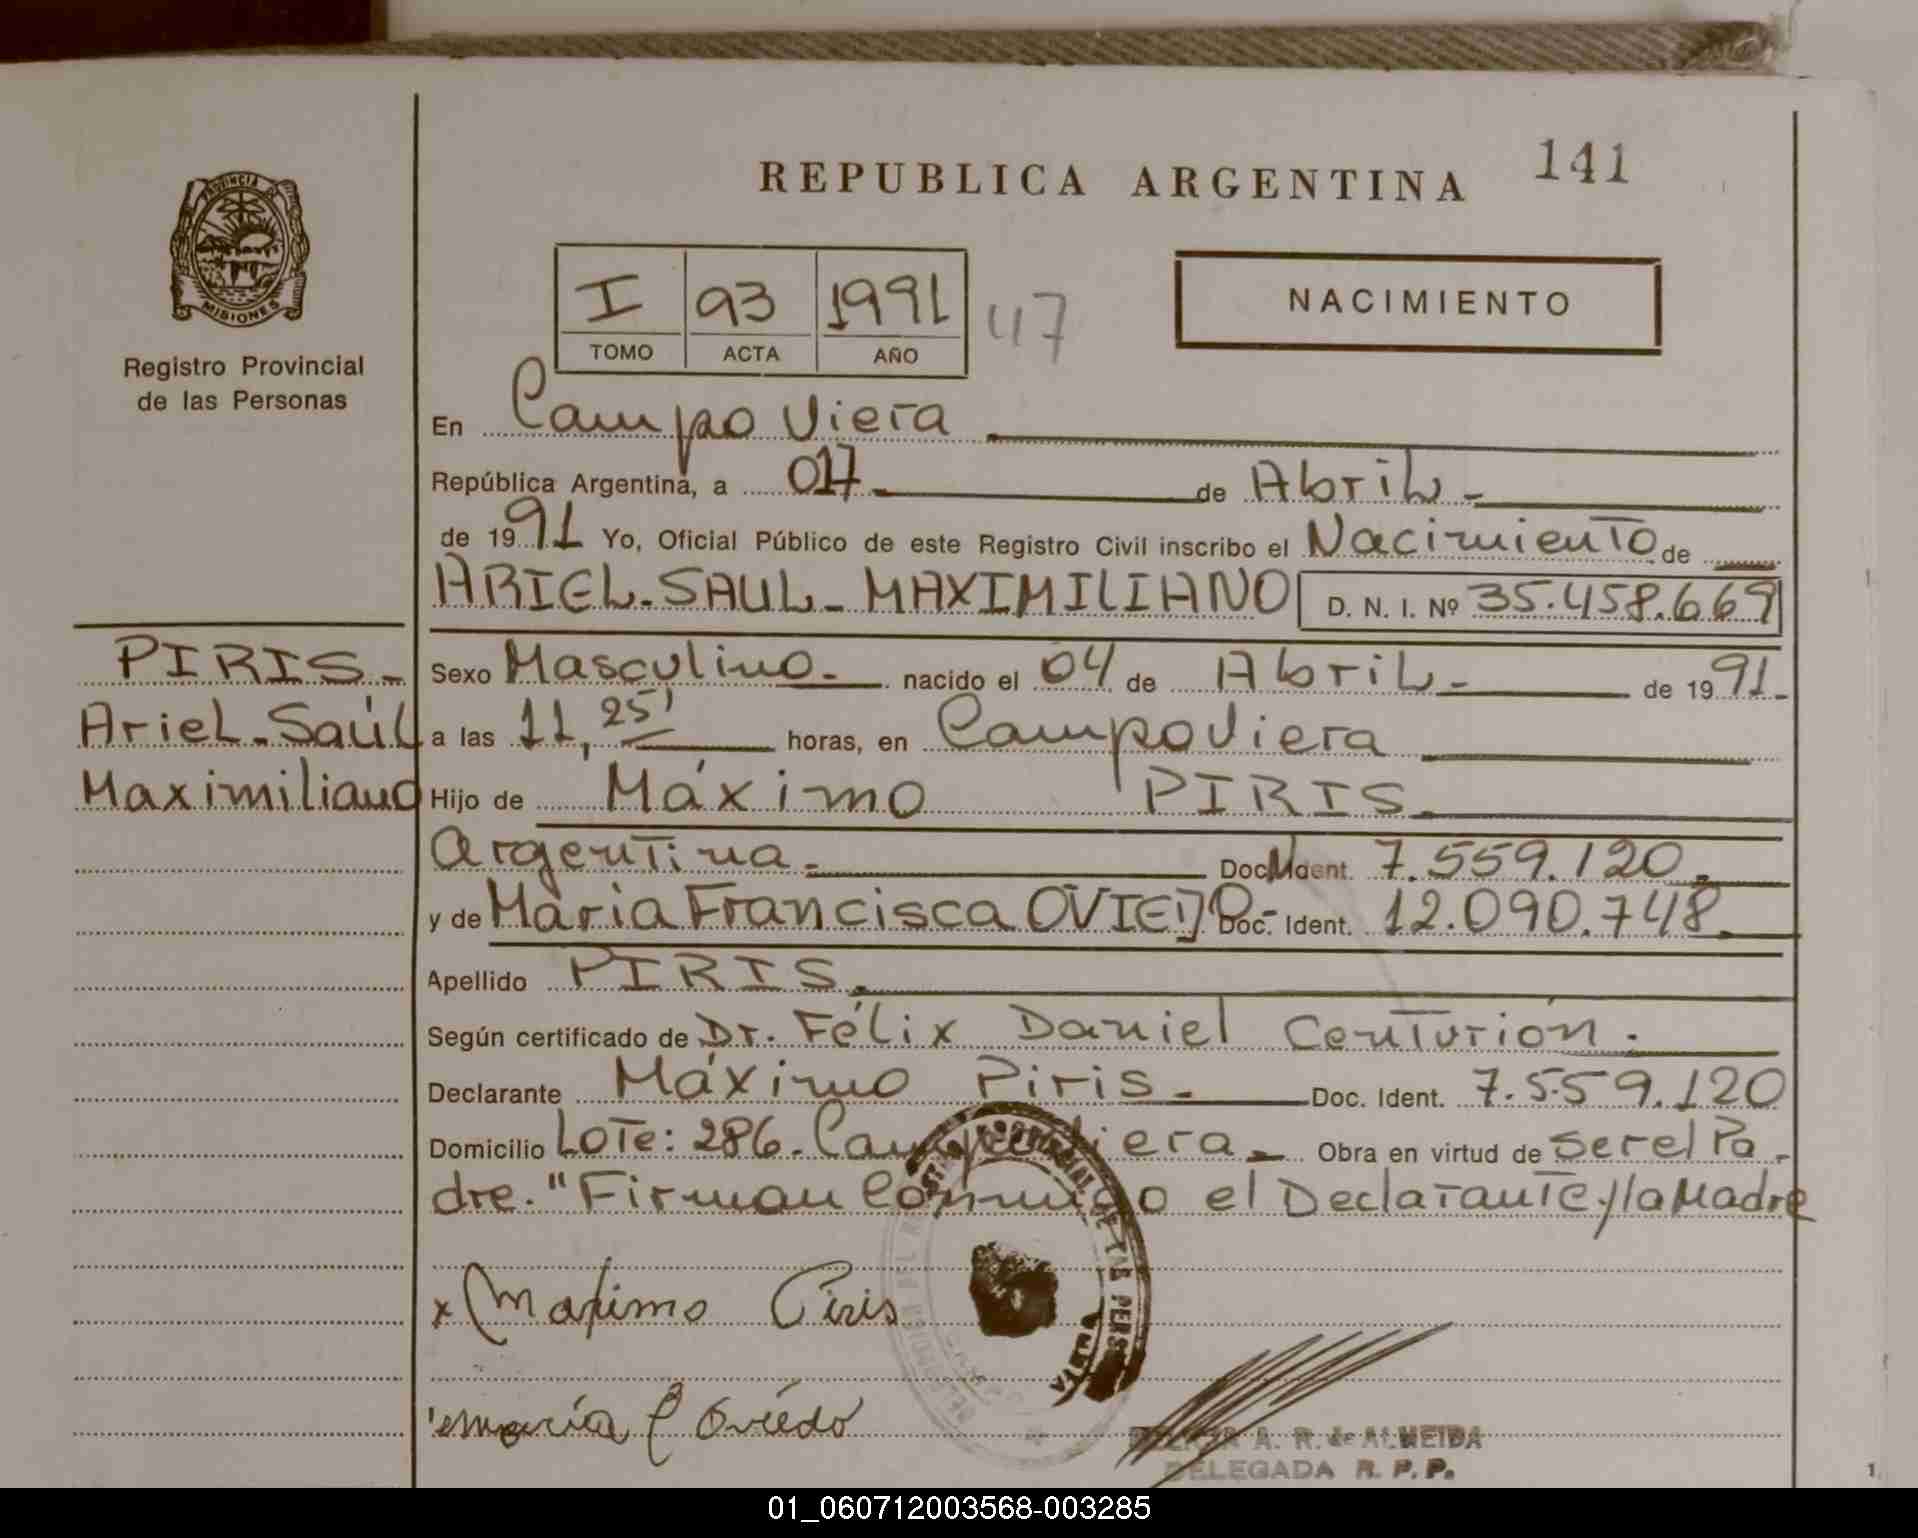 REPUBLICA ARGENTINA 141
PROVINCIA DE
MISIONES
Registro Provincial
de las Personas
I 93 1991 47
TOMO ACTA AÑO
NACIMIENTO
En Campo Viera
República Argentina, a 017 de Abril.-
de 1991 Yo, Oficial Público de este Registro Civil inscribo el Nacimiento de
ARIEL-SAUL-MAXIMILIANO D. N. I. Nº 35.458.669
PIRIS.-
Ariel-Saúl
Maximiliano
Sexo Masculino.- nacido el 04 de Abril.- de 1991.-
a las 11,25' horas, en Campo Viera
Hijo de Máximo PIRIS.-
Argentina.- Doc. Ident. 7.559.120.-
y de María Francisca OVIEDO.- Doc. Ident. 12.090.748.
Apellido PIRIS.
Según certificado de Dr. Félix Daniel Centurión.
Declarante Máximo Piris.- Doc. Ident. 7.559.120
Domicilio Lote: 286. Campo Viera.- Obra en virtud de ser el Pa-
dre. "Firman Conmigo el Declarante y la Madre
x Maximo Piris
María F Oviedo
A. R. de ALMEIDA
DELEGADA R. P. P.
01_060712003568-003285